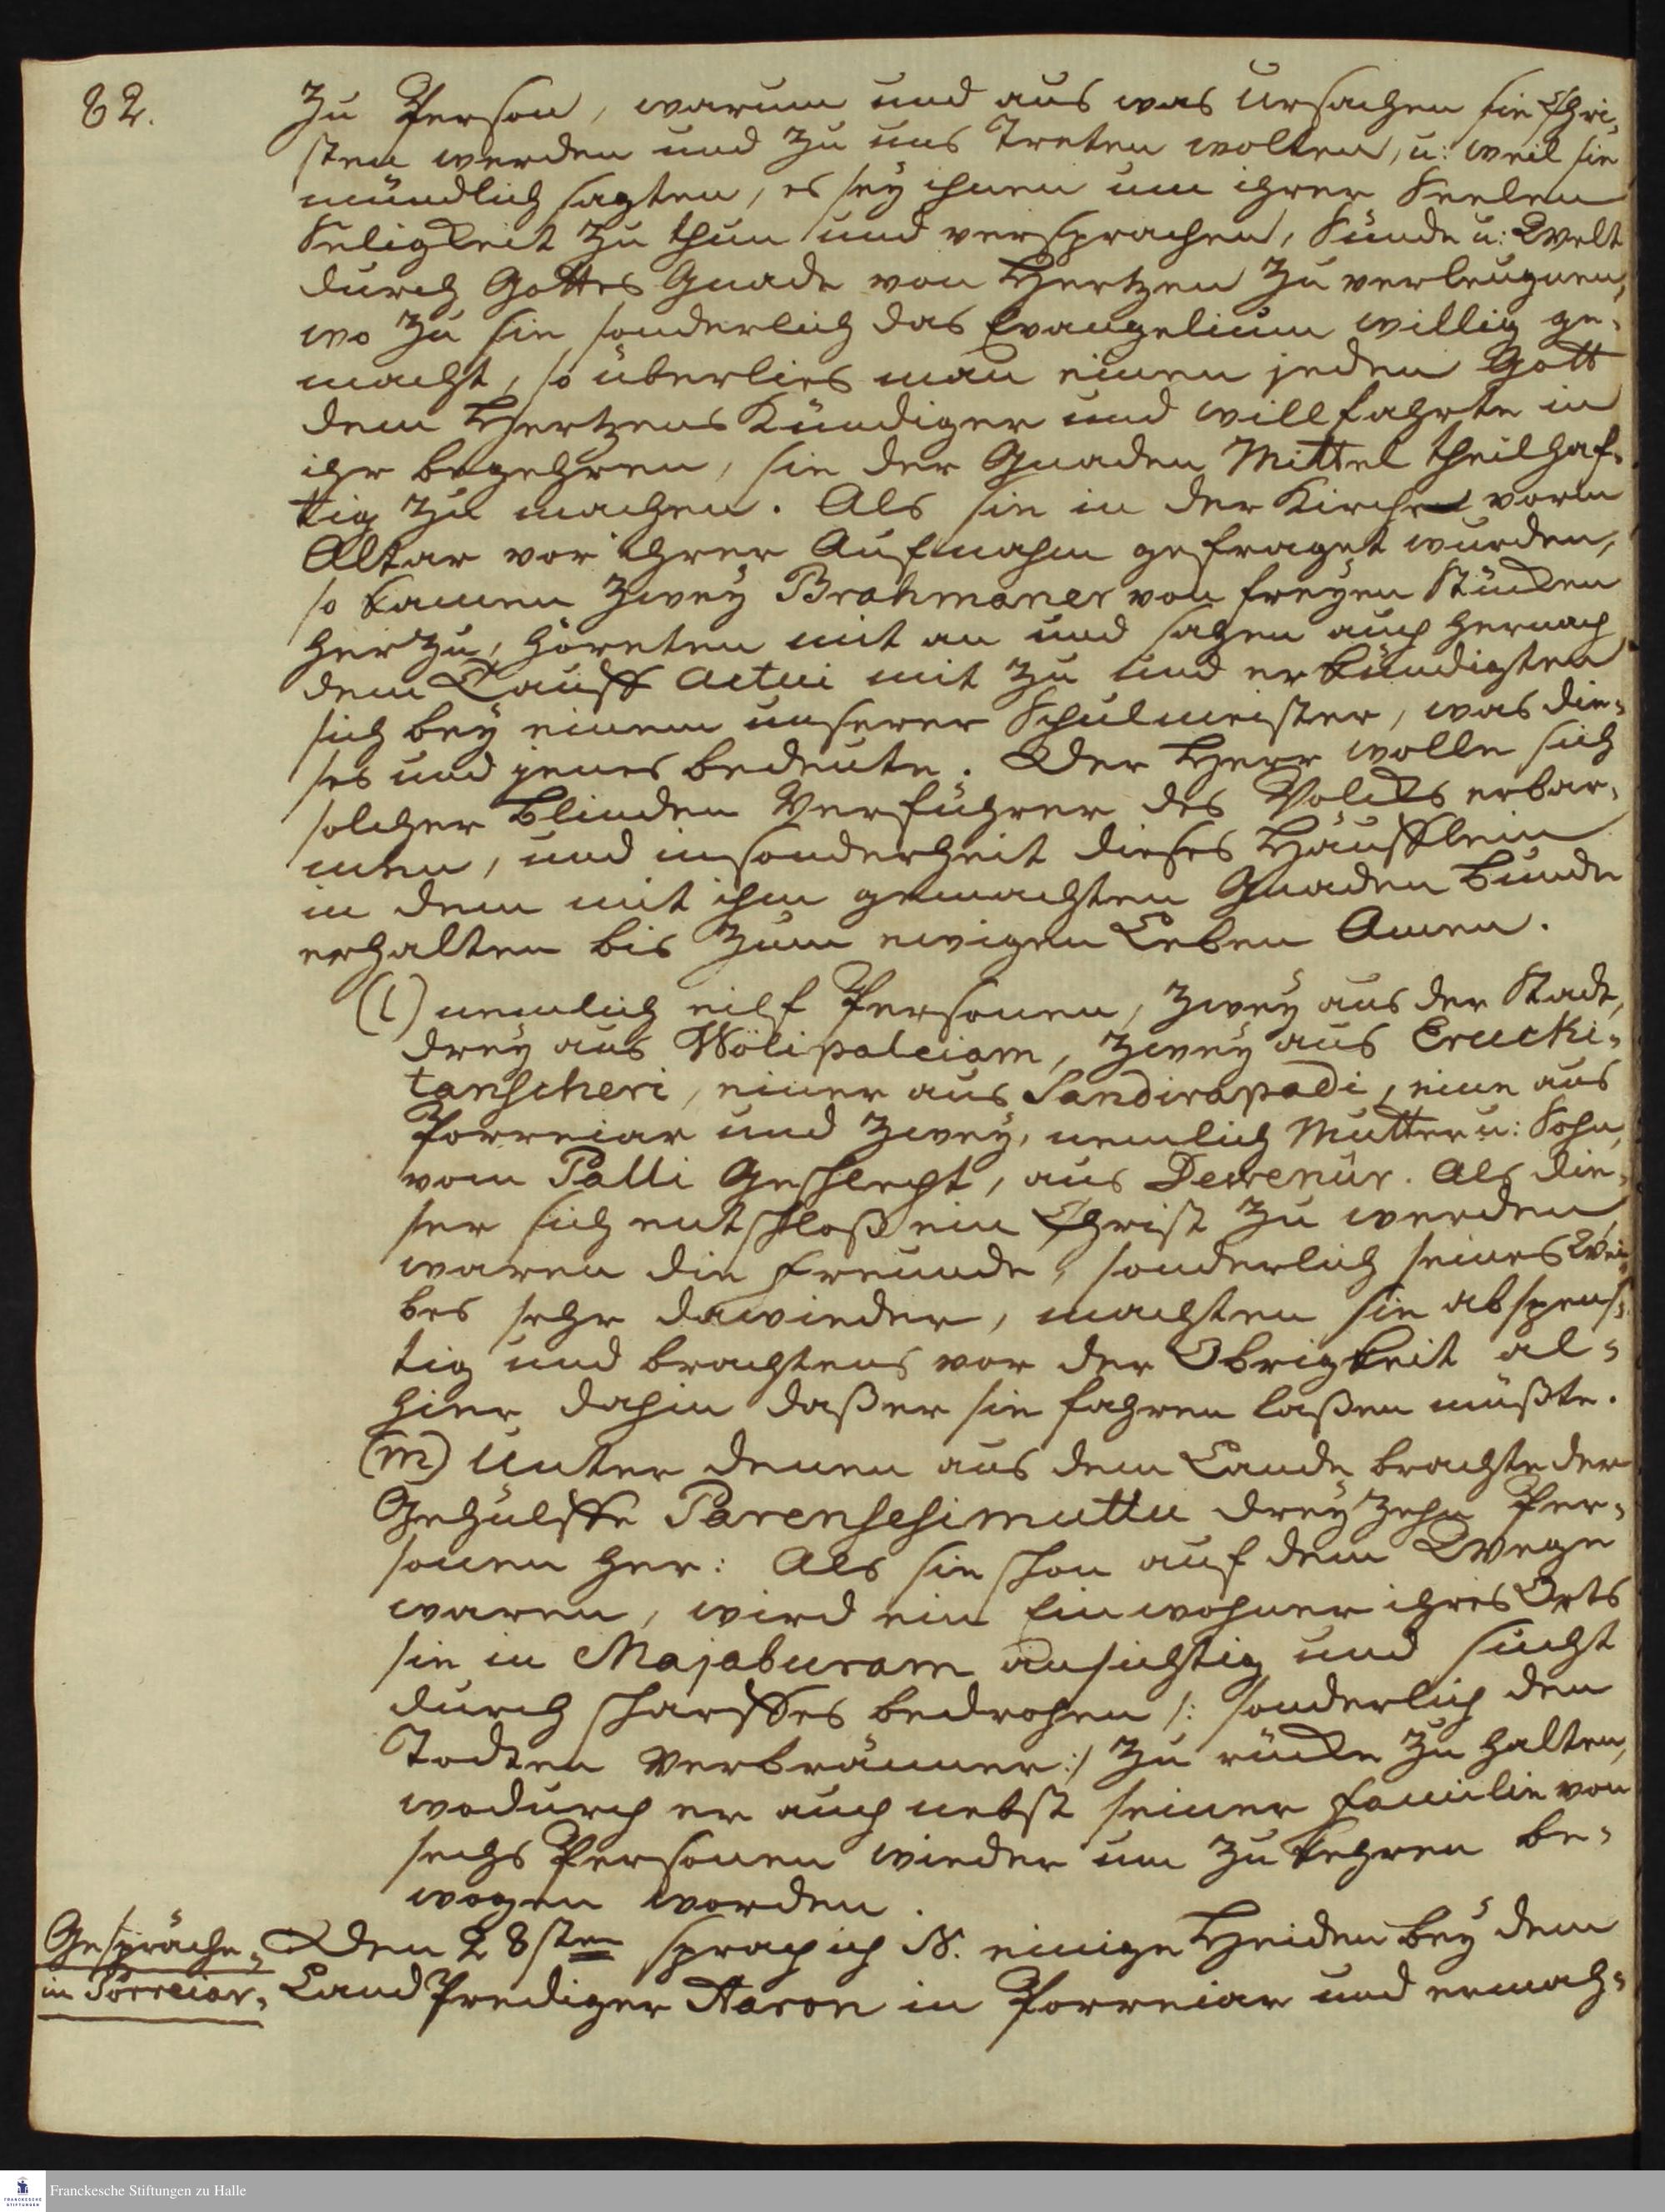 82.
zu Person, warum und aus was Ursachen sie Chri-
sten werden und zu uns treten wolten, u: weil sie
mündlich sagten, es sey ihnen um ihrer Seelen
Seligkeit zu thun und versprachen, Sünde u: Welt
durch Gottes Gnade von Hertzen zu verleugnen,
wo zu sie sonderlich das Evangelium willig ge-
macht, so überlies man einen jeden Gott
dem Hertzens Kündiger und willfahrte in
ihr begehren, sie der Gnaden Mittel theilhaf-
tig zu machen. Als sie in der Kirche vorm
Altar vor ihrer Aufnahm gefraget wurden,
so kamen zwey Brahmaner von freyen Stücken
herzu, höreten mit an und sahen auch hernach
dem Tauff actui mit zu und erkündigten
sich bey einem unserer Schulmeister, was die-
ses und jenes bedeute. Der Herr wolle sich
solcher blinden Verführer des Volcks erbar-
men, und insonderheit dieses Häufflein
in dem mit ihm gemachten Gnaden Bunde
erhalten bis zum ewigen Leben Amen.
(l) nemlich eilf Personen, zwey aus der Stadt,
drey aus Wölipaleiam, zwey aus Erucki-
tanscheri, einer aus Sandirapadi, eine aus
Porreiar und zwey, nemlich Mutter u: Sohn,
vom Palli Geschlecht, aus Dewenur. Als die-
ser sich entschloß ein Christ zu werden,
waren die Freunde, sonderlich seines Wei-
bes sehr dawieder, machten sie abspens-
tig und brachtens vor der Obrigkeit al-
hier dahin daßer sie fahren laßen müßte.
(m) Unter denen aus dem Lande brachte der
Gehülffe Parenschimuttu dreyzehn Per-
sonen her: Als sie schon auf dem Wege
waren, wird ein Einwohner ihres Orts
sie in Majaburam ansichtig und sucht
durch scharffes bedrohen /: sonderlich den
Todten Verbränner :/ zu rücke zu halten,
wodurch er auch nebst seiner Familie von
sechs Personen wieder um zu kehren be-
wogen worden.
Gespräche
in Porreiar.
Den 28sten sprach ich N. einige Heiden bey dem
Land Prediger Aaron in Porreiar und ermah-
Franckesche Stiftungen zu Halle